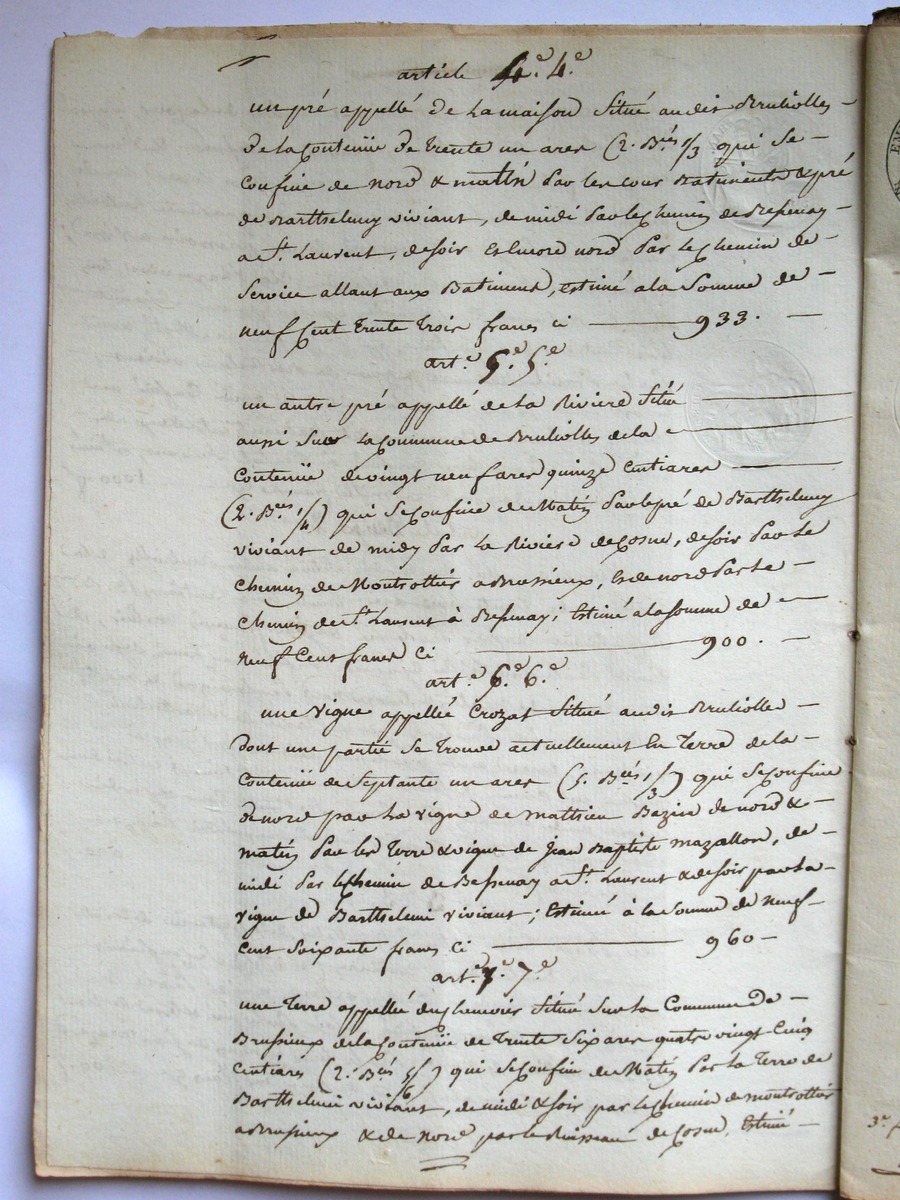 article 4e. 4e
un pré appellé de la maison situé audit Brulliolles
de la Contenüe de trente un ares (2. Bées 1/3 qui se
confine de nord & matin par les cour Batiments & pré
de Barthelemy viviant, de midi par le chemin de Besenay
a St. Laurent, de soir et encore nord par le chemin de
service allant aux Batimens, estimé a la Somme de
neuf Cent trente trois francs ci 933.
art.e 5e. 5e
un autre pré appellé de la Riviere situé
aussi sur la Commune de Brulliolles de la
Contenüe de vingt neuf ares quinze centiares
(2. Bées 1/4) qui se confine de Matin par le pré de Barthelemy
viviant de midy par la Riviere de Cosne, de soir par le
chemin de Montrottier a Brussieux, et de nord par le
chemin de St. Laurent à Besenay; Estimé a la somme de
neuf Cent francs Ci 900.
art.e 6e. 6e
une vigne appellée Crozat située audit Brulliolles
dont une partie se trouve actuellement en terre de la
Contenüe de Septante un ares (5. Bées 1/3) qui se confine
de nord par la vigne de mathieu Bazin de nord &
matin par les terre & vigne de jean Baptiste mazallon, de
midi par le chemin de Bessenay a St. Laurent & de soir par la
vigne de Barthelemi viviant; Estimée à la somme de neuf
cent soixante francs Ci 960
art.e 7.e 7e
une terre appellée située sur la Commune de
Brussieux de la Contenüe de trente six ares quatre vingt cinq
centiares (2. Bées 5/6) qui se confine de Matin par la terre de
Barthelemi viviant, de midi & soir par le chemin de montrottier
a Brussieux & de nord par le Ruisseau de Cosne, Estimé
3e